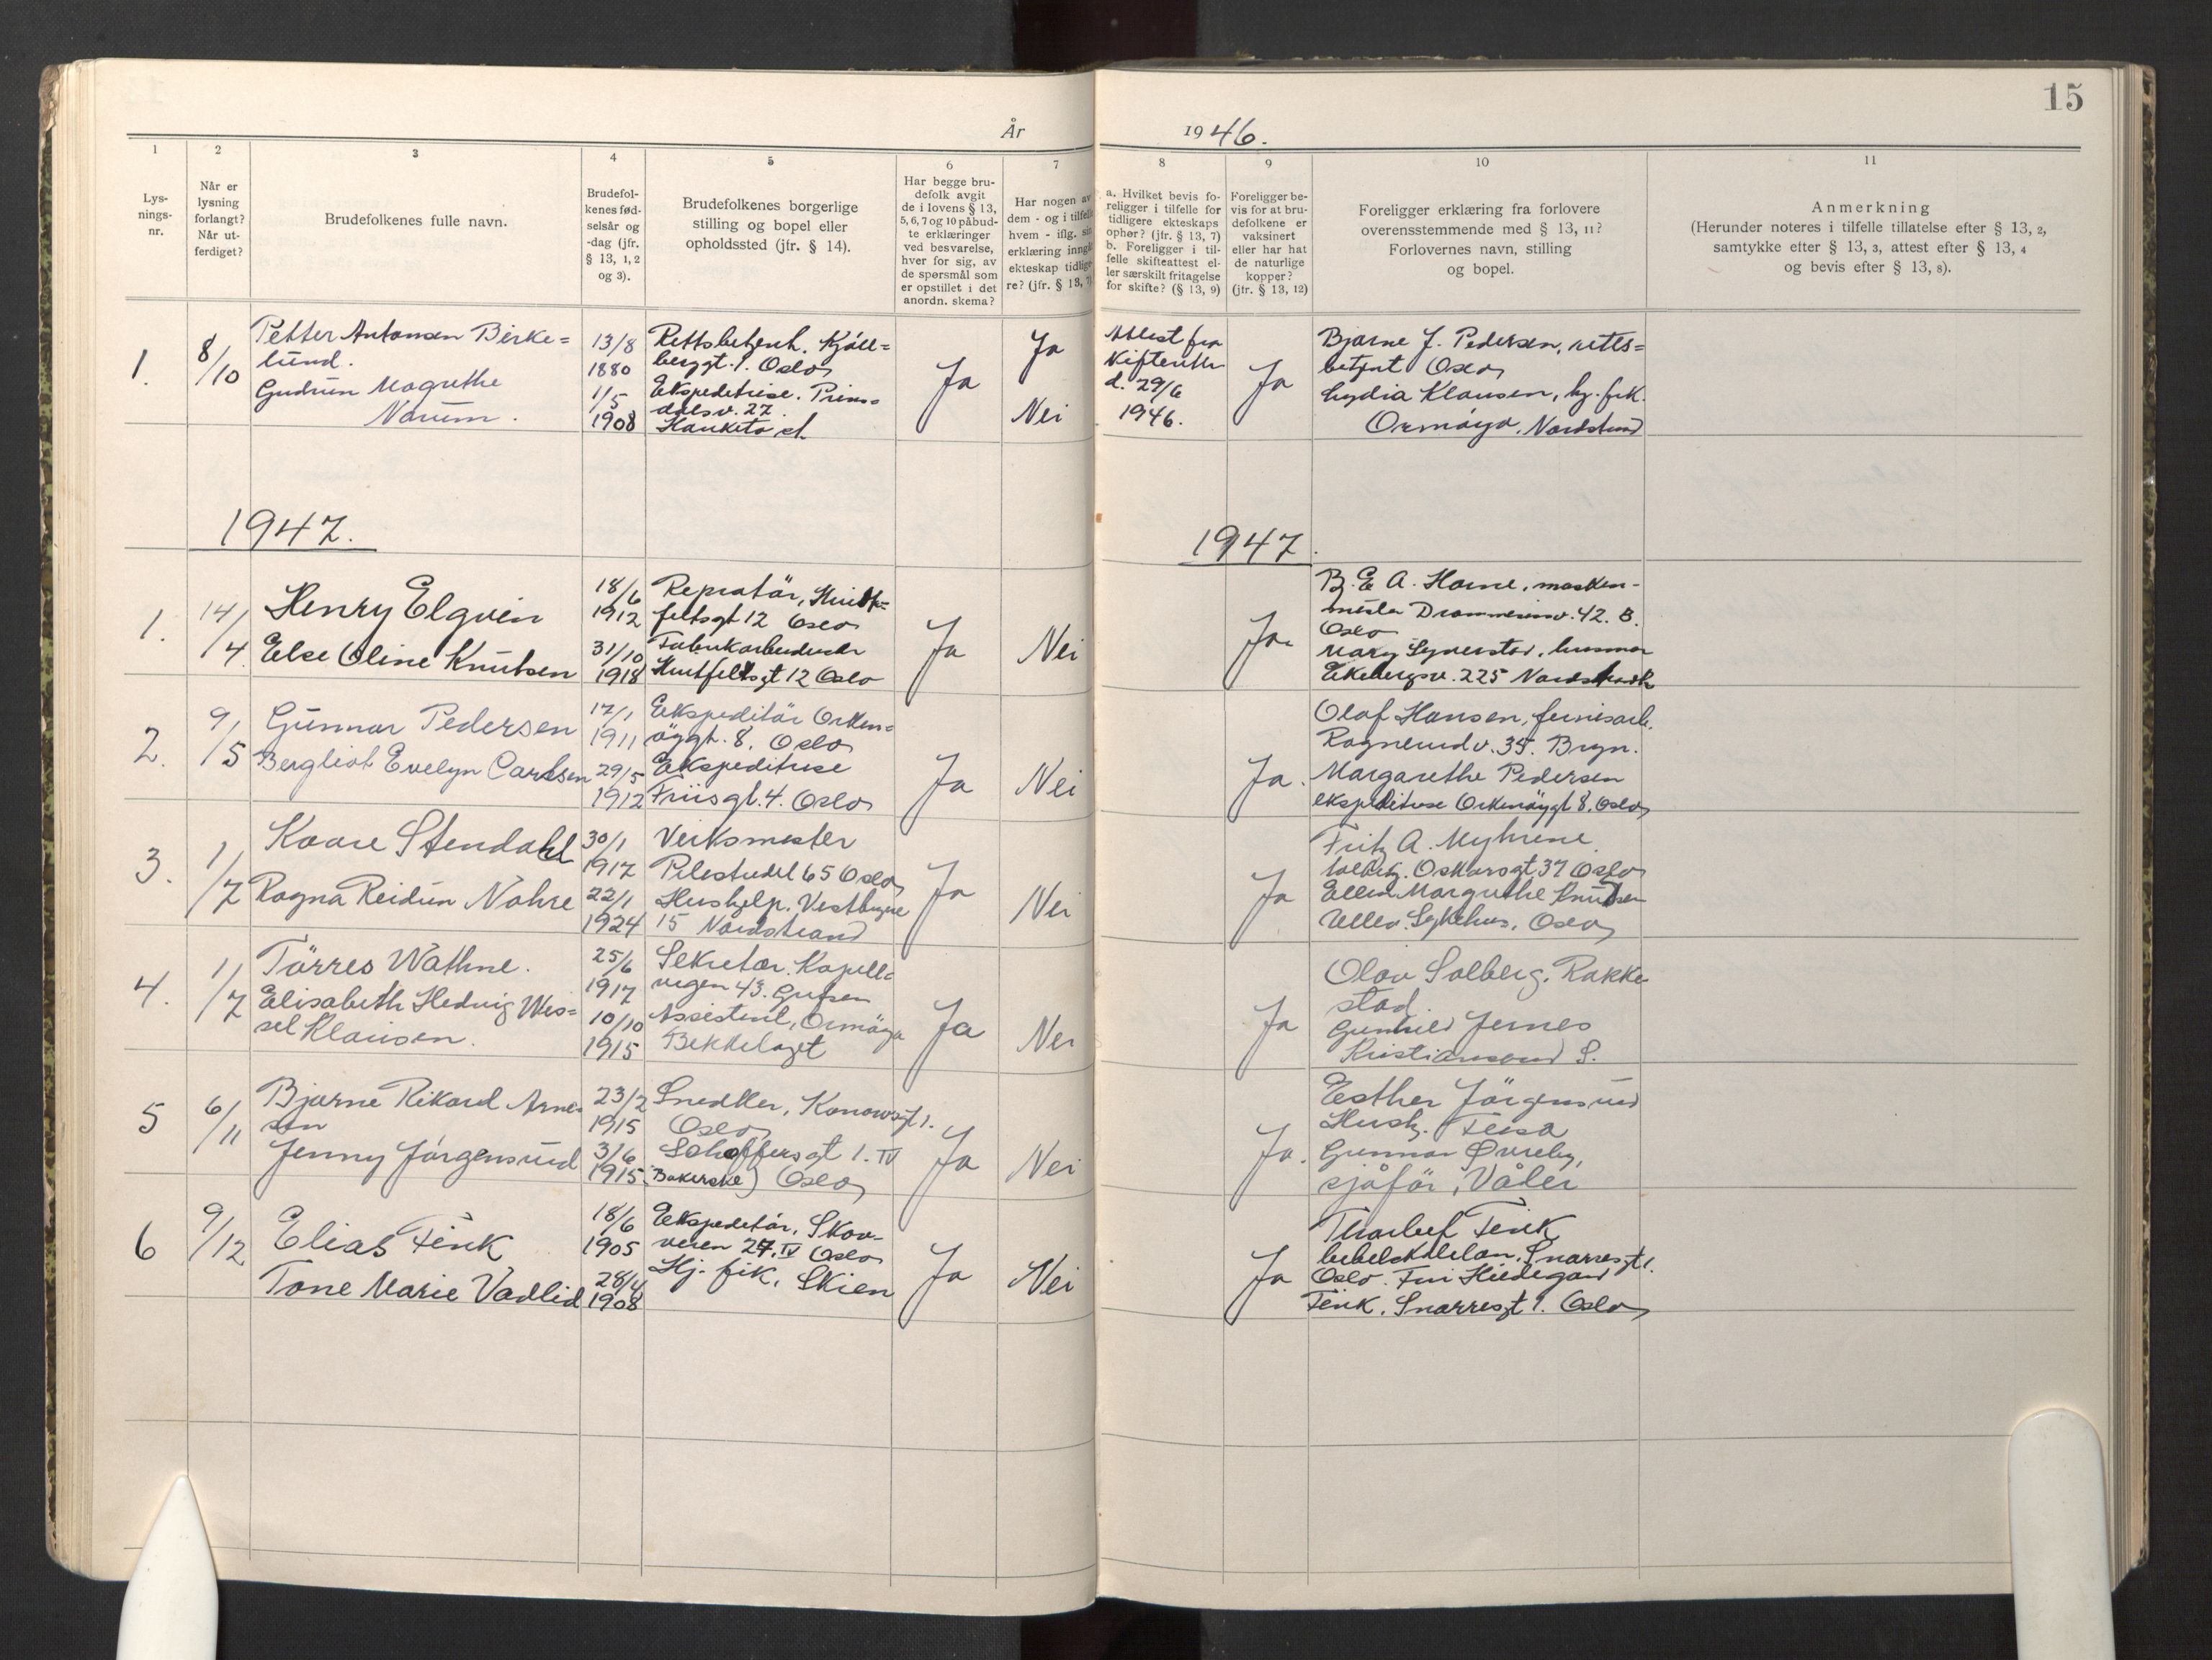 15
År 1946.
1 2 3 4 5 6 7 8 9 10 11
Lys-
nings-
nr.
Når er
lysning
forlangt?
Når ut-
ferdiget?
Brudefolkenes fulle navn.
Brudefol-
kenes fød-
selsår og
-dag (jfr.
§ 13, 1, 2
og 3).
Brudefolkenes borgerlige
stilling og bopel eller
opholdssted (jfr. § 14).
Har begge bru-
defolk avgit
de i lovens § 13,
5, 6, 7 og 10 påbud-
te erklæringer
ved besvarelse,
hver for sig, av
de spørsmål som
er opstillet i det
anordn. skema?
Har nogen av
dem - og i tilfelle
hvem - iflg. sin
erklæring inngått
ekteskap tidlige-
re? (jfr. § 13, 7)
a. Hvilket bevis fo-
religger i tilfelle for
tidligere ekteskaps
ophør? (jfr. § 13, 7)
b. Foreligger i til-
felle skifteattest el-
ler særskilt fritagelse
for skifte? (§ 13, 9)
Foreligger be-
vis for at bru-
defolkene er
vaksinert
eller har hat
de naturlige
kopper?
(jfr. § 13, 12)
Foreligger erklæring fra forlovere
overensstemmende med § 13, 11?
Forlovernes navn, stilling
og bopel.
Anmerkning
(Herunder noteres i tilfelle tillatelse efter § 13, 2,
samtykke efter § 13, 3, attest efter § 13, 4
og bevis efter § 13, 8).
1.
8/10
Petter Antonsen Birke=
lund.
Gudrun Magrethe
Narum.
13/8
1880
1/5
1908
Rettsbetjent. Kjöll=
berggt. 1. Oslo
Ekspeditrise. Prins=
dalsv. 22.
Hauketo st.
Ja
Ja
Nei
Attest fra
skifteretten
d. 29/6
1946.
Ja
Bjarne J. Pedersen, retts=
betjent Oslo
Lydia Klausen, hj. frk.
Ormöya, Nordstrand
1947.
1947.
1.
14/4
Henry Elgvin
Else Oline Knutsen
18/6
1912
31/10
1918
Repratör,
feltsgt 12 Oslo
Fabrikarbeiderske
Huitfeltsgt 12 Oslo
Ja
Nei
Ja
B. E. A. Horne, maskin-
mester Drammensv. 42. B.
Oslo
Mary Syverstad, husmor
Ekebergsv. 225 Nordstrandh
2.
9/5
Gunnar Pedersen
Bergliot Evelyn Carlsen
17/1
1911
29/5
1912
Ekspeditör Orken=
öygt. 8. Oslo
Ekspeditrise
Friisgt. 4. Oslo
Ja
Nei
Ja.
Olaf Hansen, fernisarb.
Rognerud v. 35. Bryn.
Margarethe Pedersen
ekspeditrise Orkenöygt 8. Oslo
3.
1/7
Kaare Stendahl
Ragna Reidun Nohre
30/1
1917
22/1
1924
Verksmester
Pilestredet 65 Oslo
Hushjelp. Vestbyne
15 Nordstrand
Ja
Nei
Ja
Fritz A. Myhrene
Oskarsgt 37 Oslo
Ellen Margrethe Knudsen
Ullev. Sykehus, Oslo
4.
1/7
Törres Wathne.
Elisabeth Hedvig Wes=
sel Klausen.
25/6
1917
10/10
1915
Sekretær. Kapell=
vegen 43. Grefsen
Assistent, Ormöya
Bekkelaget
Ja
Nei
Ja
Olav Solberg, Rakke
stad.
Gunhild Jernes
Kristiansand S.
5
6/11
Bjarne Rikard Arne=
sen
Jenny Jörgensrud
23/2
1915
3/6
1915
Snedker, Konowsgt 1.
Oslo
Schoffersgt 1. IV
Bakerske) Oslo
Ja
Nei
Ja.
Esther Jörgensrud
Hush. Teisa
Gunnar Øvreby,
sjåför, Våler
6
9/12
Elias Fink
Tone Marie Vadlid
18/6
1905
28/4
1908
Ekspeditör, Skov-
veien 27. IV Oslo
Hj. frk, Skien
Ja
Nei
Ja
Thorleif Fink
Snarresgt 1.
Oslo. Fru Hildegard
Fink, Snarresgt 1. Oslo